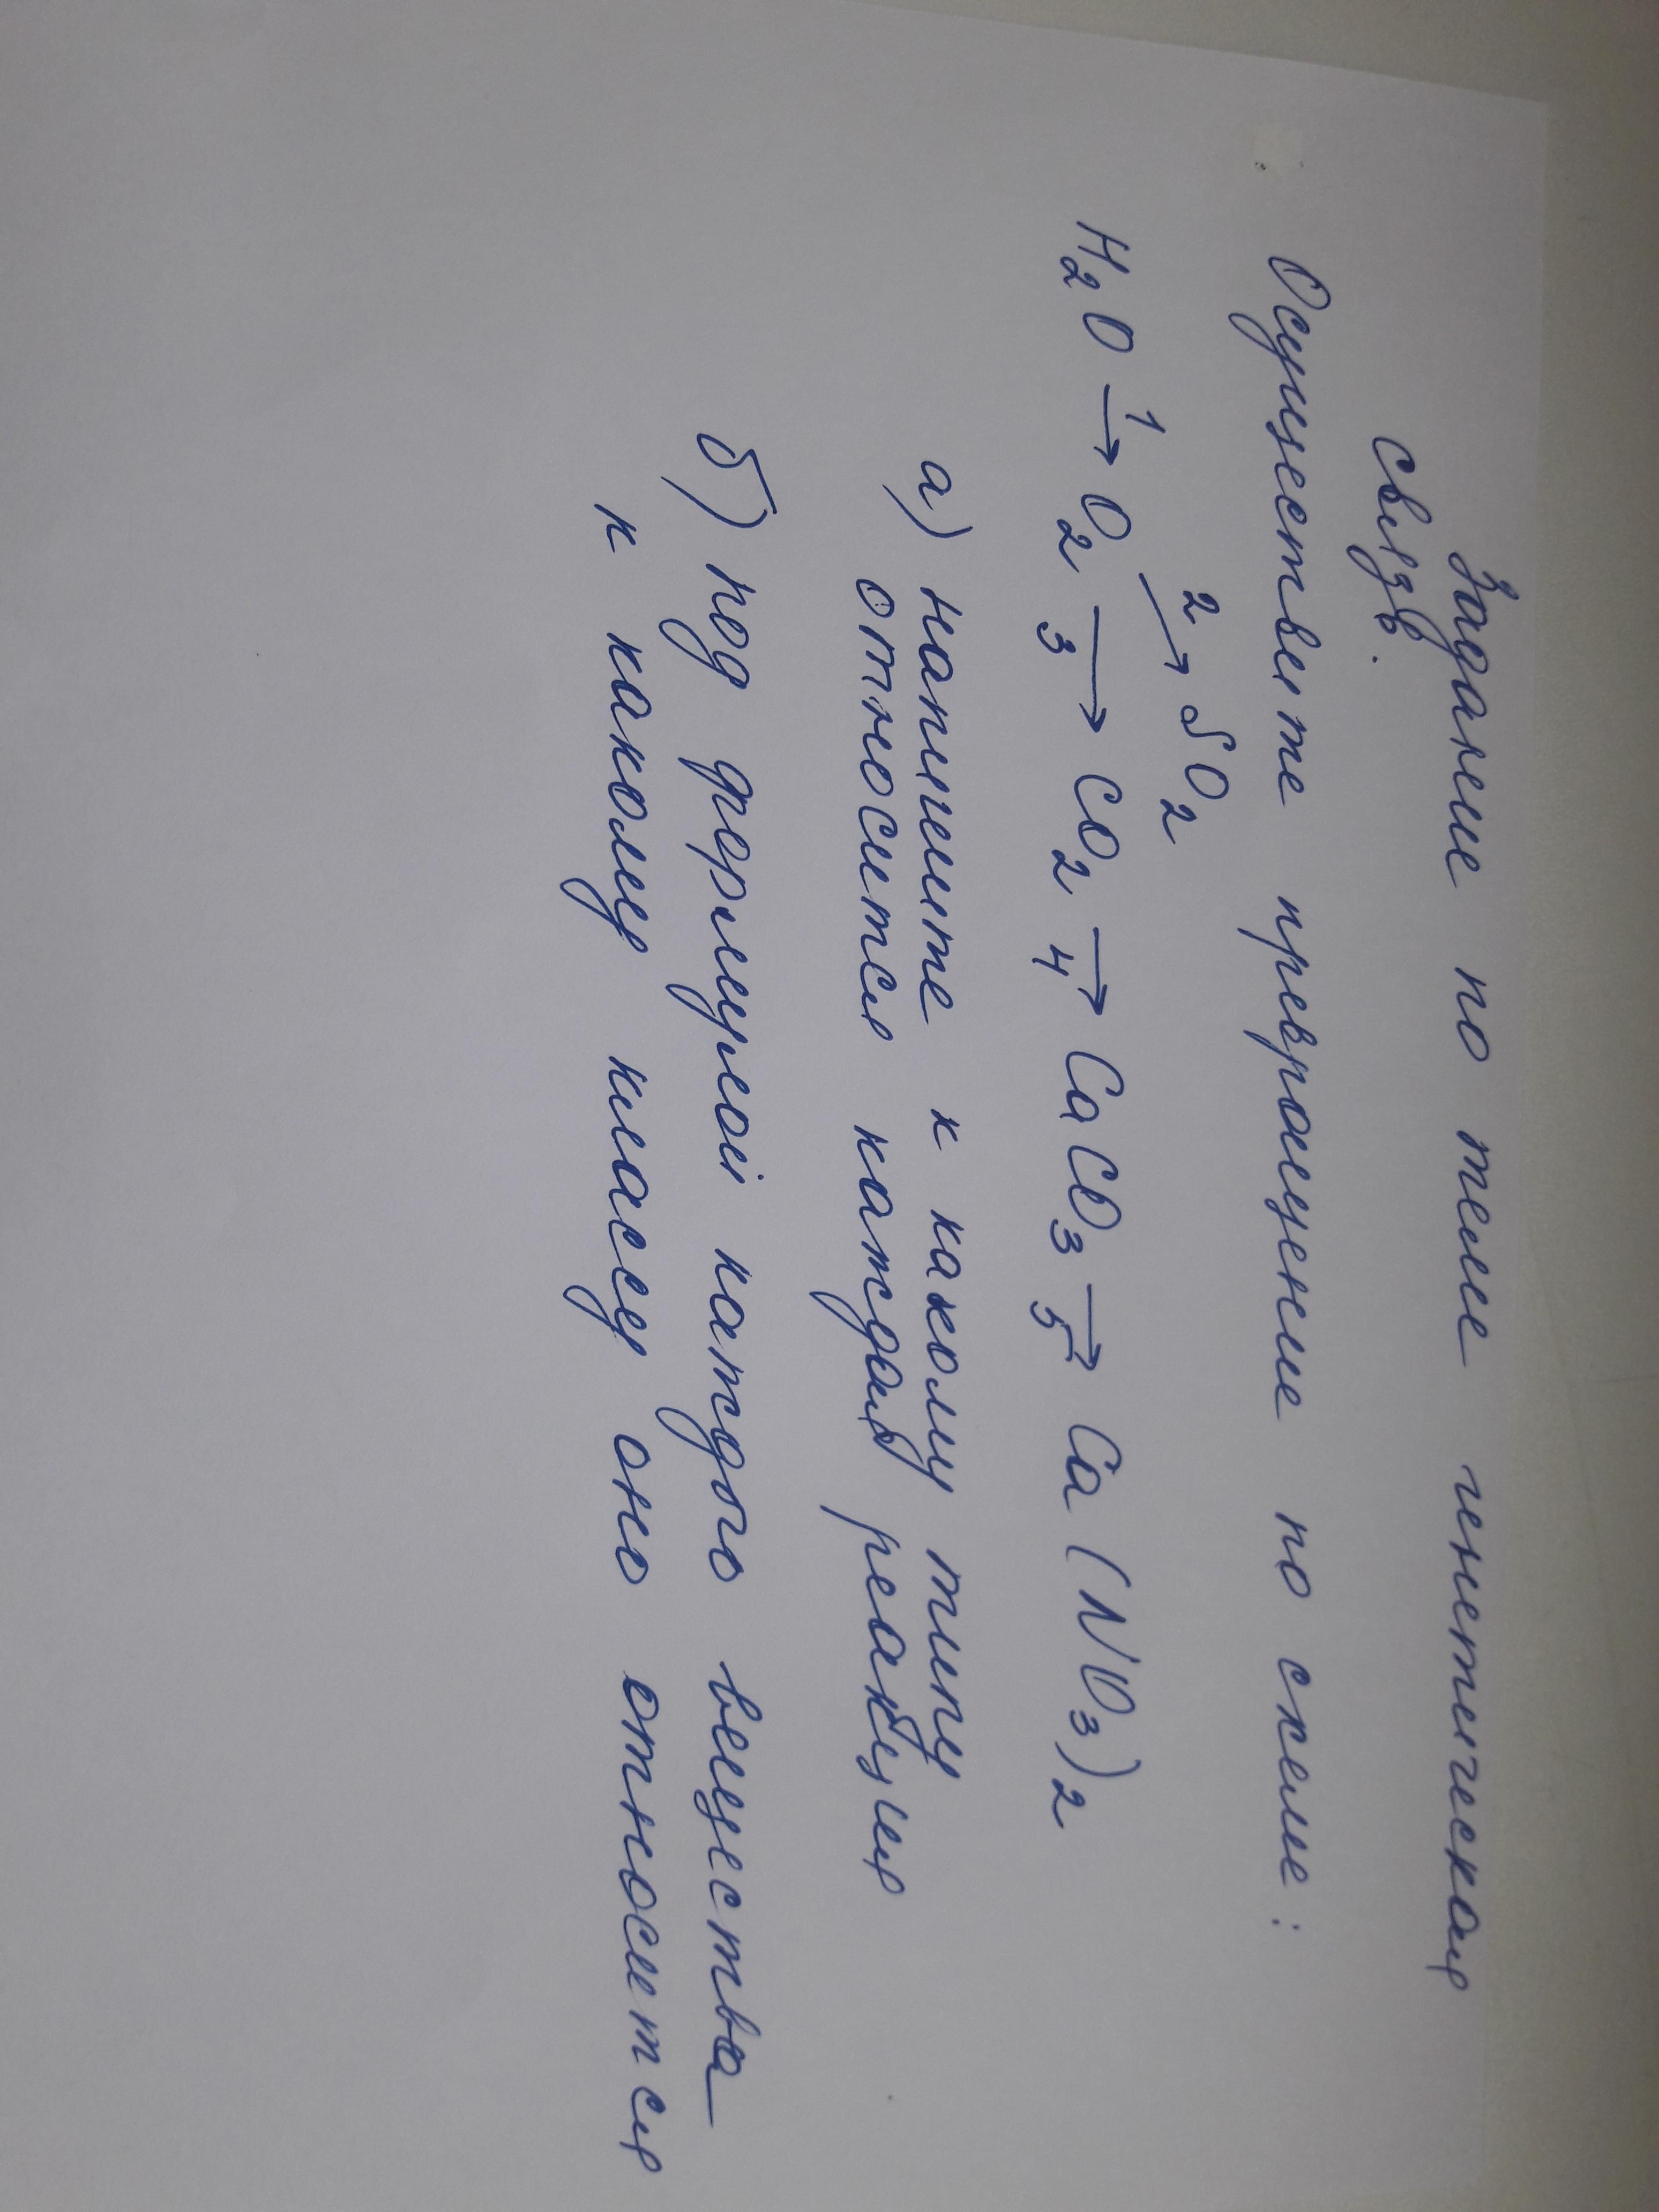 Задание по теме генетическая
связь.
Осуществите превращение по схеме:
2→ SO2
H2O 1→ O2 →3 CO2 →4 CaCO3 →5 Ca(NO3)2
а) напишите к какому типу
относится каждая реакция
б) под формулой каждого вещества
к какому классу оно относится